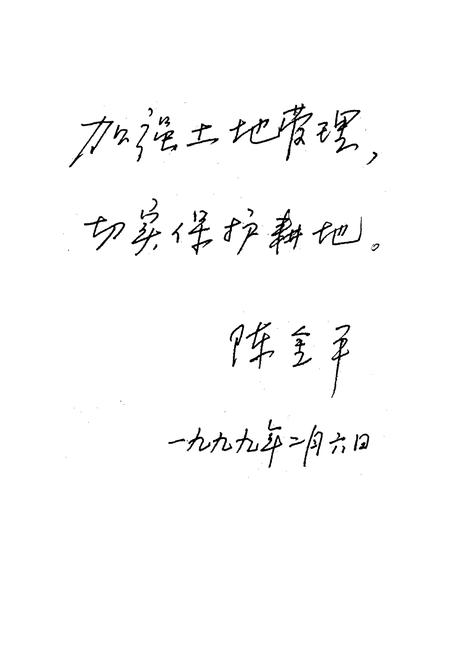 加强土地管理，
切实保护耕地。
陈金平
一九九九年二月六日